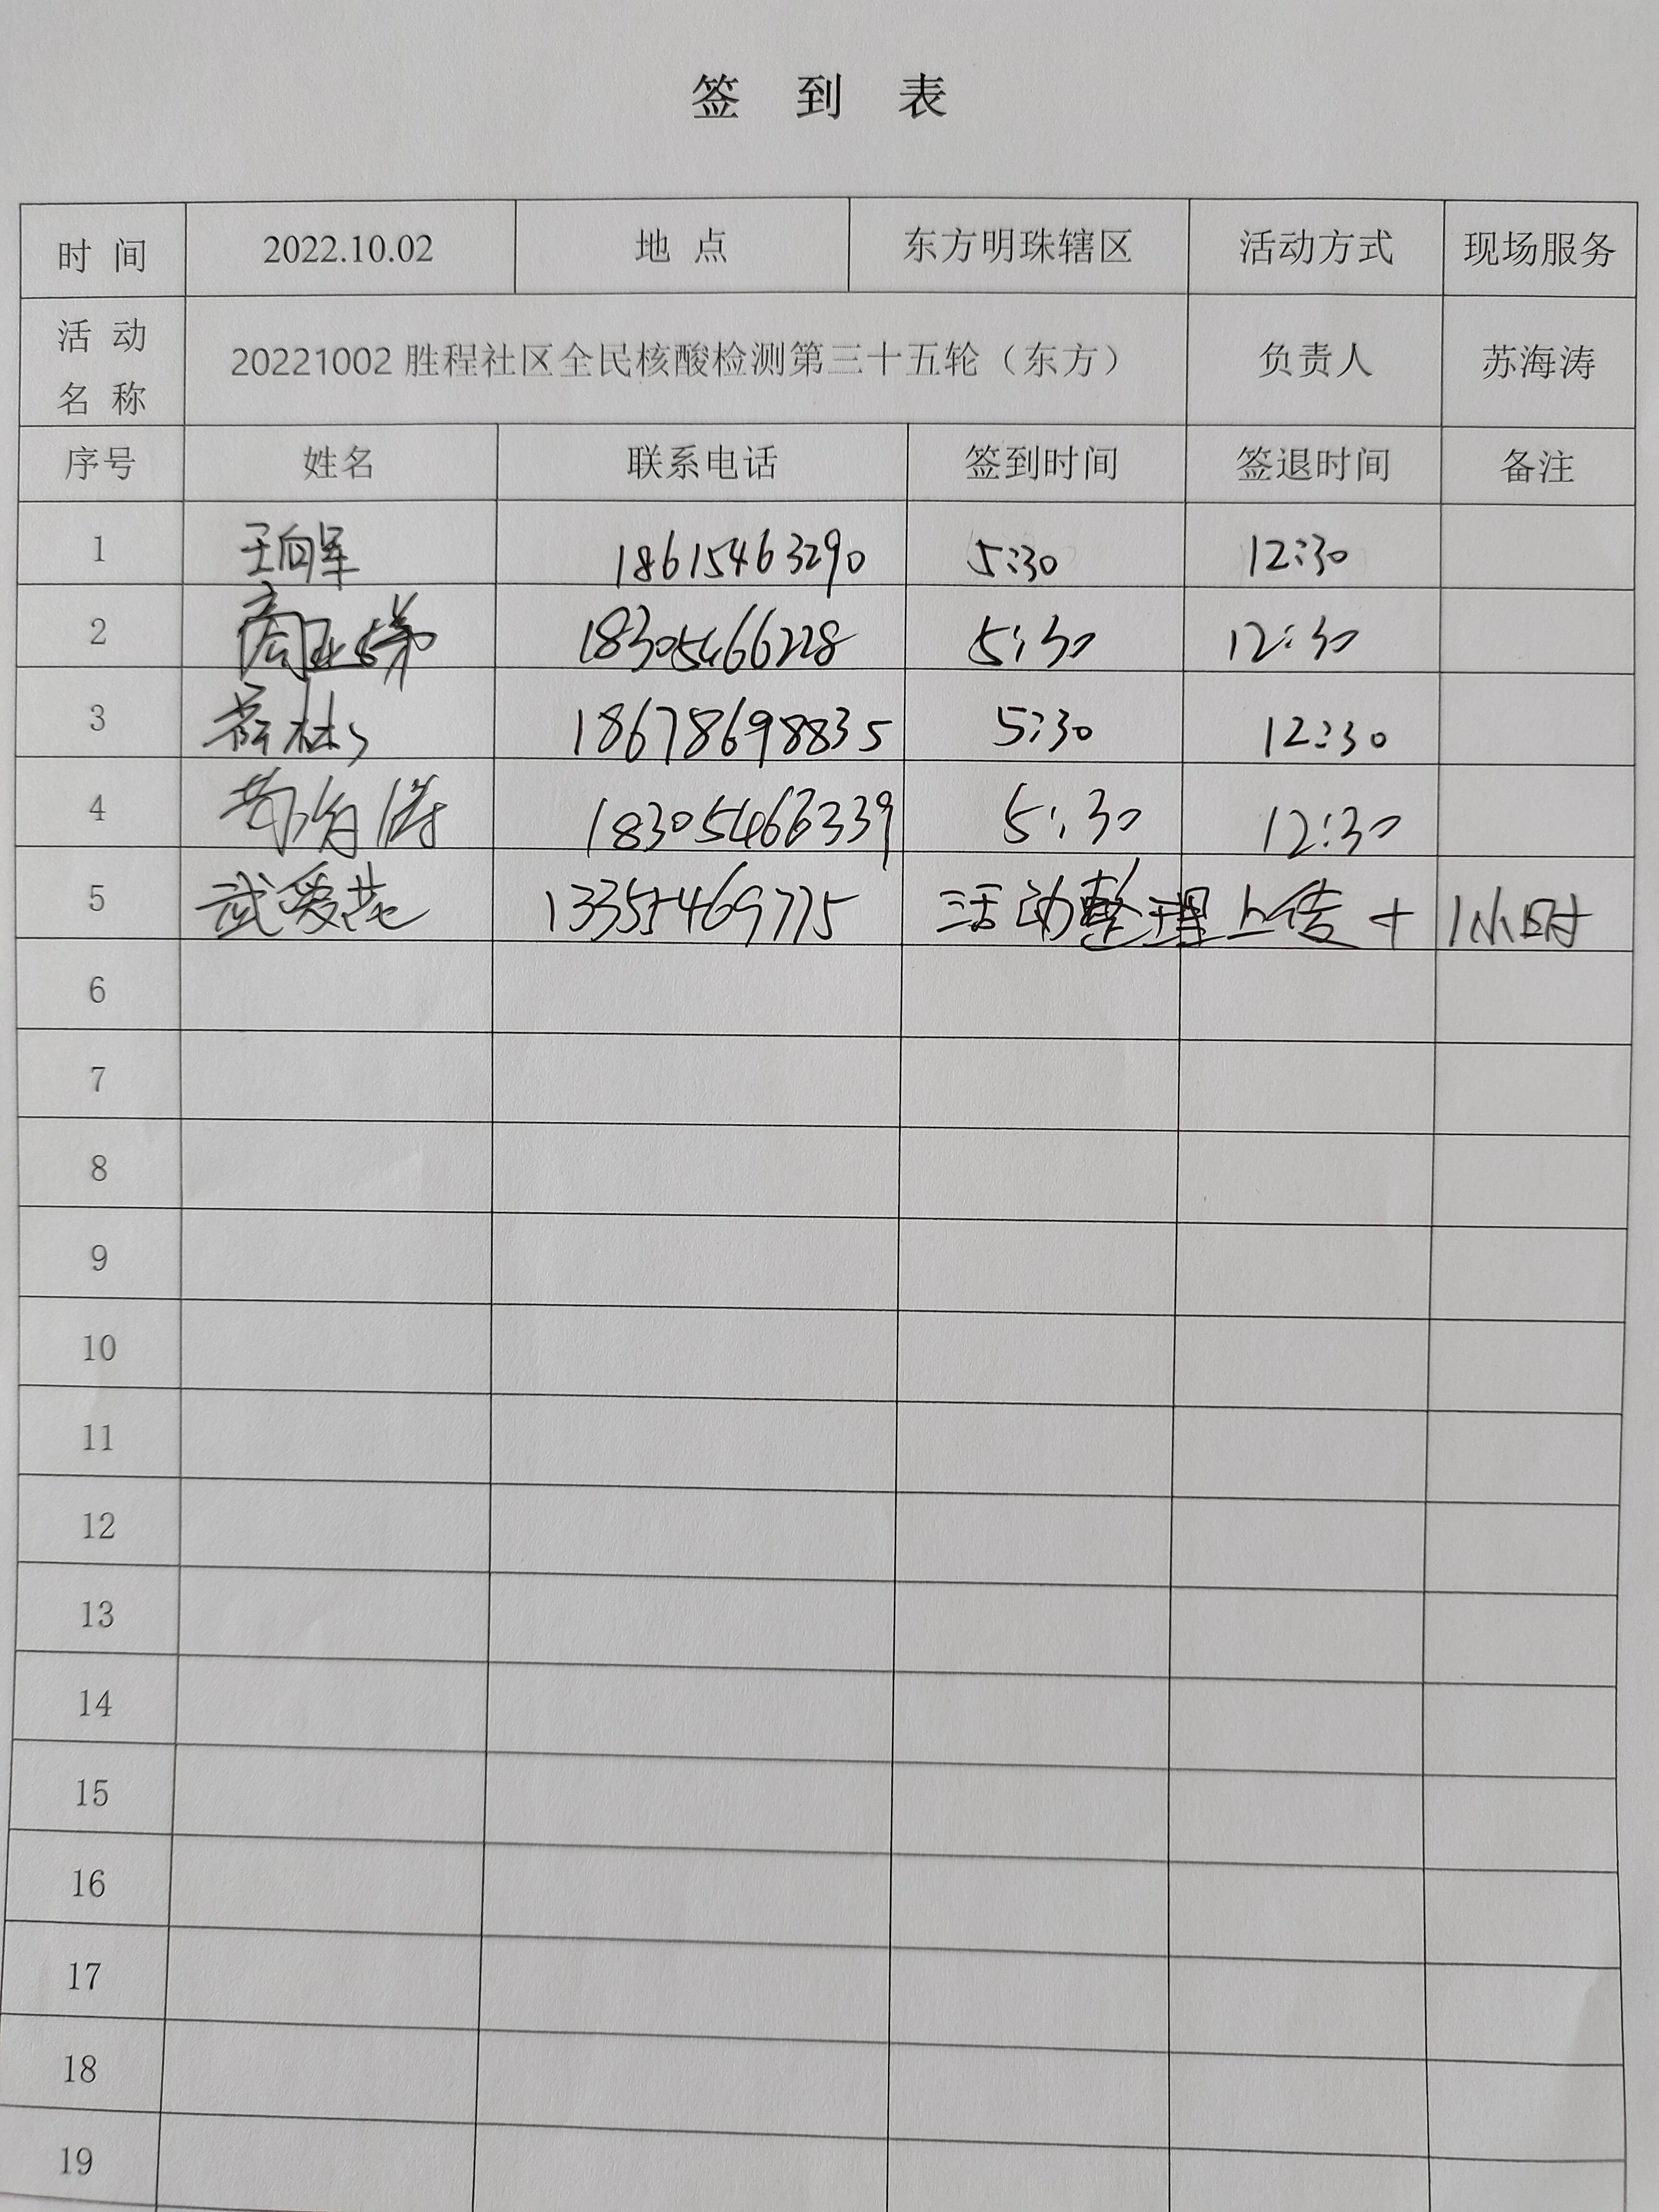 签 到 表
时 间 2022.10.02 地 点 东方明珠辖区 活动方式 现场服务
活 动 名 称 20221002胜程社区全民核酸检测第三十五轮（东方） 负责人 苏海涛
序号 姓名 联系电话 签到时间 签退时间 备注
1 王向军 18615463290 5:30 12:30
2 18305466228 5:30 12:30
3 18678698835 5:30 12:30
4 5:30 12:30
5 13355469775 活动整理上传+1小时
6
7
8
9
10
11
12
13
14
15
16
17
18
19